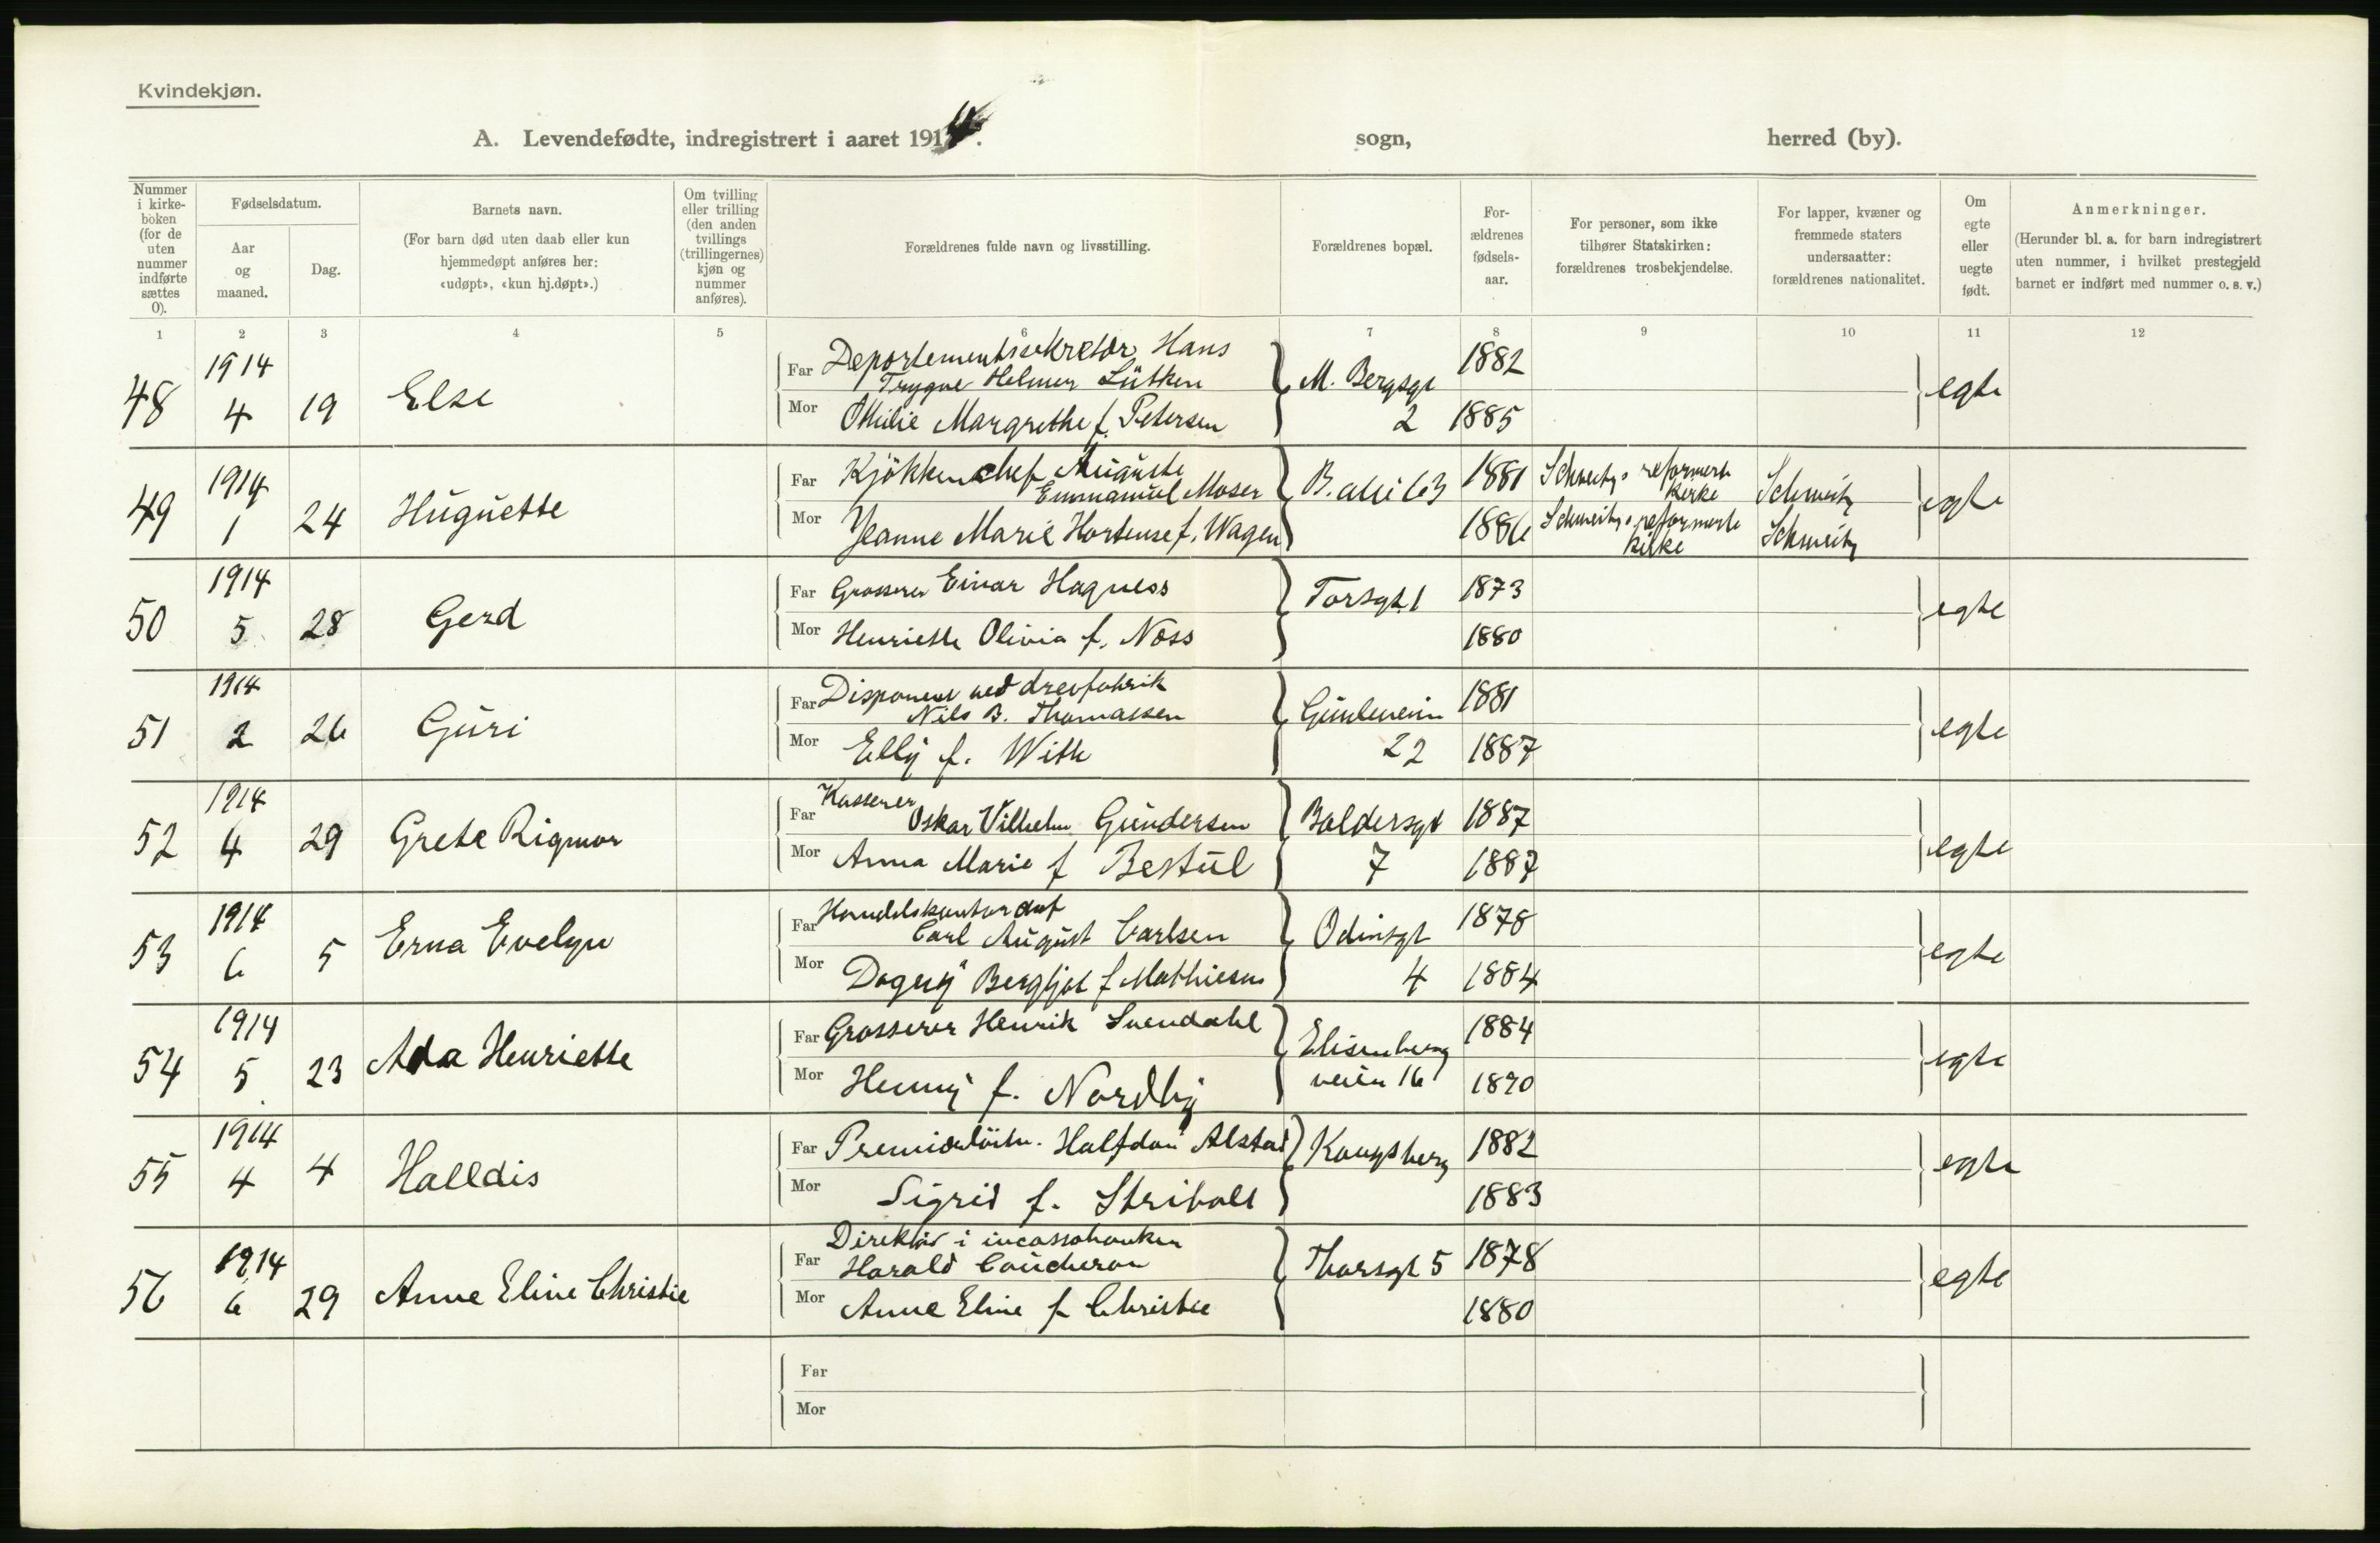 Kvindekjøn.
A. Levendefødte, indregistrert i aaret 1914. sogn, herred (by).
Nummer i kirkeboken (for de uten nummer indførte sættes 0).
Fødselsdatum.
Aar og maaned.
Dag.
Barnets navn.
(For barn død uten daab eller kun hjemmedøpt anføres her: «udøpt», «kun hj.døpt».)
Om tvilling eller trilling (den anden tvillings (trillingernes) kjøn og nummer anføres).
Forældrenes fulde navn og livsstilling.
Forældrenes bopæl.
Forældrenes fødselsaar.
For personer, som ikke tilhører Statskirken: forældrenes trosbekjendelse.
For lapper, kvæner og fremmede staters undersaatter: forældrenes nationalitet.
Om egte eller uegte født.
Anmerkninger.
(Herunder bl. a. for barn indregistrert uten nummer, i hvilket prestegjeld barnet er indført med nummer o. s. v.)
1 2 3 4 5 6 7 8 9 10 11 12
48 1914 4 19 Else
Far Departementssekretær Hans
Trygve Helmer Lütken M. Bergsgt 1882 egte
Mor Ottilie Margrethe f. Petersen 2 1885
49 1914 1 24 Huguette
Far Kjøkkenchef Auguste
Emmanuel Moser B. allé 63 1881 Schweitz's reformerte kirke Schweitz egte
Mor Jeanne Marie Hortense f. Wagen 1886 Schweitz's reformerte kirke Schweitz
50 1914 5 28 Gerd
Far Grosserer Einar Hagness Torsgt 1 1873 egte
Mor Henriette Olivia f. Næss 1880
51 1914 2 26 Guri
Far Disponent ved drevfabrik
Nils B. Thomassen 1881 egte
Mor Elly f. With 22 1887
52 1914 4 29 Grete Rigmor
Far Kasserer
Oskar Vilhelm Gundersen Baldersgt 1887 egte
Mor Anna Marie f Bestul 7 1887
53 1914 6 5 Erna Evelyn
Far Handelskontorchef
Carl August Carlsen Odinsgt 1878 egte
Mor Dagny Bergljot f Mathiesen 4 1884
54 1914 5 23 Ada Henriette
Far Grosserer Henrik Svendahl Elisenberg 1884 egte
Mor Henny f. Nordby veien 16 1890
55 1914 4 4 Halldis
Far Premierløitn. Halfdan Alstad Kongsberg 1882 egte
Mor Sigrid f. Stribolt 1883
56 1914 6 29 Anne Eline Christie
Far Direktør i incassobanken
Harald Coucheron Thorsgt 5 1878 egte
Mor Anne Eline f Christie 1880
Far
Mor